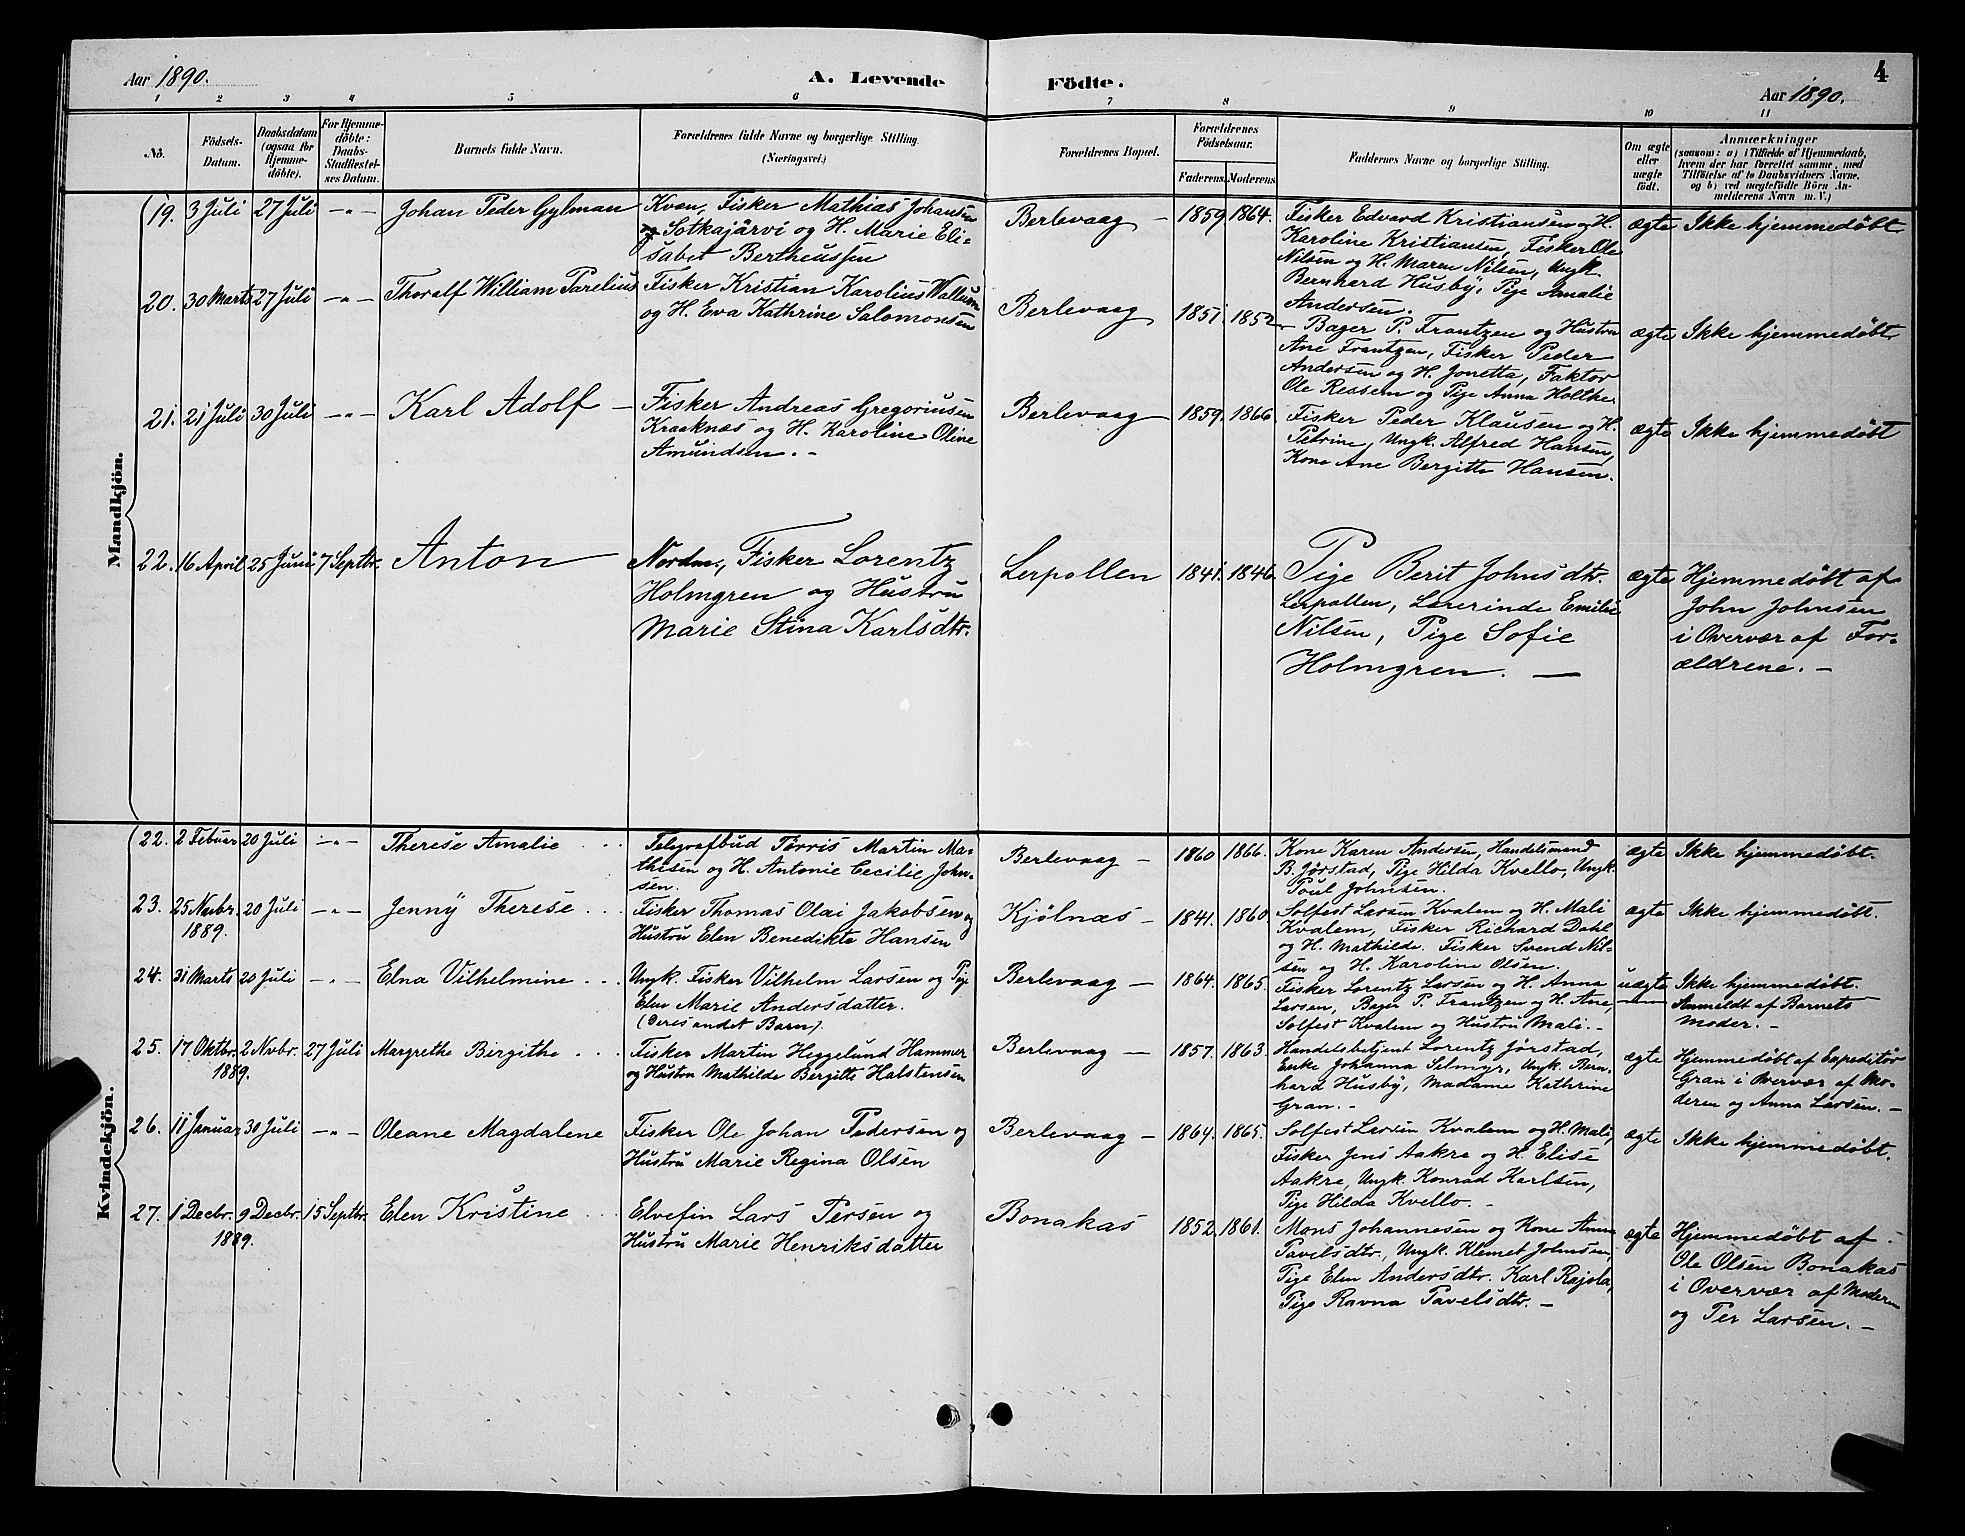 Aar 1890.
A. Levende Födte.
Aar 1890.
4
1 2 3 4 5 6 7 8 9 10 11
No.
Födsels-
Datum.
Daabsdatum
(ogsaa for
Hjemme-
döbte).
For Hjemme-
döbte:
Daabs-
Stadfæstel-
ses Datum.
Barnets fulde Navn.
Forældrenes fulde Navne og borgerlige Stilling.
(Næringsvei.)
Forældrenes Bopæl.
Forældrenes
Födselsaar.
Faderens. Moderens.
Faddernes Navne og borgerlige Stilling.
Om ægte
eller
uægte
födt.
Anmærkninger
(saasom: a) i Tilfælde af Hjemmedaab,
hvem der har forrettet samme, med
Tilföielse af to Daabsvidners Navne,
og b) ved uægtefödte Börn An-
melderens Navn m. V.)
Mandkjön.
19. 3 Juli 27 Juli -"- Johan Peder Gylman
Kvæn, Fisker Mathias Johansen
Sotkajärvi og H. Marie Eli-
sabet Bertheussen
Berlevaag - 1859 1864.
Fisker Edvard Kristiansen og H.
Karoline Kristiansen, Fisker Ole
Nilsen og H. Maren Nilsen, Ungk.
Bernhard Husby, Pige Amalie
Andersen.
ægte Ikke hjemmedøbt
20. 30 Marts 27 Juli -"- Thoralf William Parelius
Fisker Kristian Karolius Wallum
og H. Eva Kathrine Salomonsen
Berlevaag 1851. 1852
- Bager P. Frantzen og Hustru
Ane Frantzen, Fisker Peder
Andersen og H. Jonetta, Faktor
Ole Ressem og Pige Anna Holthe.
ægte Ikke hjemmedøbt
21. 21 Juli 30 Juli -"- Karl Adolf -
Fisker Andreas Gregoriusen
Kraaknæs og H. Karoline Oline
Amundsen. -
Berlevaag 1859. 1866
Fisker Peder Klausen og H.
Petrine, Ungk. Alfred Hansen,
Kone Ane Bergitte Hansen.
ægte Ikke hjemmedøbt
22. 16 April 25 Juni 7 Septbr. Anton
Nordm., Fisker Lorentz
Holmgren og Hustru
Marie Stina Karlsdtr.
Lerpollen 1841. 1846
Pige Berit Johnsdtr.
Lerpollen, Lærerinde Emilie
Nilsen, Pige Sofie
Holmgren. -
ægte Hjemmedøbt af
John Johnsen
i Overvær af For-
ældrene. -
Kvindekjön.
22. 2 Febuar 20 Juli -"- Therese Amalie
Telegrafbud Tørris Martin Ma-
thisen og H. Antonie Cecilie John-
sen.
Berlevaag - 1860 1866.
Kone Karen Andersen, Handelsmand
B. Jørstad, Pige Hilda Kvello, Ungk.
Poul Johnsen.
ægte Ikke hjemmedøbt.
23. 25 Novbr. 1889. 20 Juli -"- Jenny Therese
Fisker Thomas Olai Jakobsen og
Hustru Elen Benedikte Hansen
Kjölnæs - 1841. 1860
Solfest Larsen Kvalem og H. Mali
Kvalem, Fisker Richard Dahl
og H. Mathilde. Fisker Svend Nil-
sen og H. Karoline Olsen.
ægte Ikke hjemmedøbt.
24. 31 Marts 20 Juli -"- Elna Vilhelmine
Ungk. Fisker Vilhelm Larsen og Pige
Elen Marie Andersdatter.
(Deres andet Barn).
Berlevaag - 1864. 1865.
Fisker Lorentz Larsen og H. Anna
Larsen, Bager P. Frantzen og H. Ane,
Solfest Kvalem og Hustru Mali. -
uægte Ikke hjemmedøbt.
Anmeldt af Barnets
Moder. -
25. 17 Oktbr. 1889. 2 Novbr. 27 Juli Margrethe Birgithe
Fisker Martin Heggelund Hammer
og Hustru Mathilde Bergitte Halstensen
Berlevaag - 1857. 1863.
Handelsbetjent Lorentz Jørstad,
Enke Johanna Selmyr, Ungk. Bern-
hard Husby, Madame Kathrine
Gran. -
ægte Hjemmedøbt af Expeditør
Gran i Overvær af Mo-
deren og Anna Larsen. -
26. 11 Januar 30 Juli -"- Oleane Magdalene
Fisker Ole Johan Pedersen og
Hustru Marie Regina Olsen
Berlevaag - 1864. 1865.
Solfest Larsen Kvalem og H. Mali,
Fisker Jens Aakre og H. Elise
Aakre, Ungk. Konrad Karlsen,
Pige Hilda Kvello. -
ægte Ikke hjemmedøbt.
27. 1 Decbr. 1889. 9 Decbr. 15 Septbr. Elen Kristine
Elvefin Lars Persen og
Hustru Marie Henriksdatter
Bonakas 1852. 1861.
Mons Johannesen og Kone Anna
Pavelsdtr., Ungk. Klemet Johnsen,
Pige Elen Andersdtr. Karl Rajola,
Pige Ravna Pavelsdtr. -
ægte Hjemmedøbt af
Ole Olsen Bonakas
i Overvær af Moderen
og Per Larsen. -